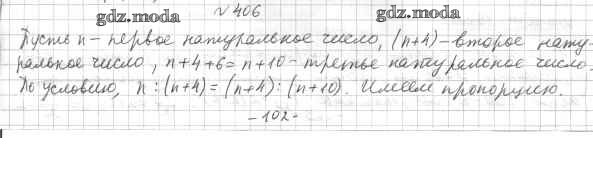 gdz.moda № 406 gdz.moda
Пусть n - первое натуральное число, (n+4) - второе нату-
ральное число, n+4+6=n+10 - третье натуральное число.
По условию, n:(n+4)=(n+4):(n+10). Имеем пропорцию.
-102-